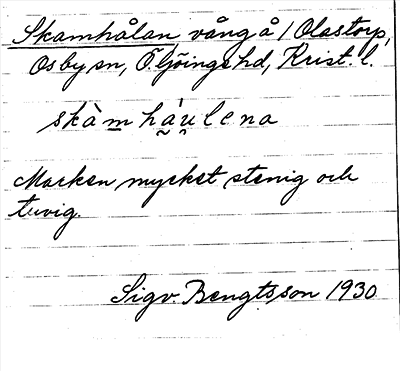 Skamhålan vång å / Olastorp,
Osby sn, Ö. Göinge hd, Krist. l.
skàm há̰ṷlena
Marken mycket stenig och
tuvig.
Sigv. Bengtsson 1930